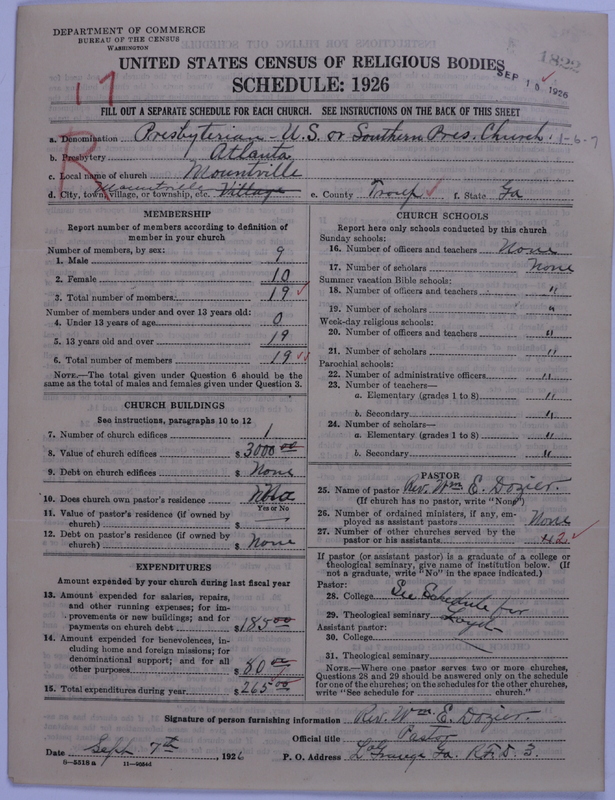 DEPARTMENT OF COMMERCE
BUREAU OF THE CENSUS
WASHINGTON
1822
UNITED STATES CENSUS OF RELIGIOUS BODIES
SEP 10 1926
SCHEDULE: 1926
17
FILL OUT A SEPARATE SCHEDULE FOR EACH CHURCH. SEE INSTRUCTIONS ON THE BACK OF THIS SHEET
R
a. Denomination Presbyterian - U.S. or Southern Pres. Church. 1-6-7
b. Presbytery Atlanta
c. Local name of church Mountville
d. City, town, village, or township, etc. Mountville Village e. County Troup f. State Ga
MEMBERSHIP
Report number of members according to definition of member in your church
Number of members, by sex:
1. Male 9
2. Female 10
3. Total number of members: 19
Number of members under and over 13 years old:
4. Under 13 years of age 0
5. 13 years old and over 19
6. Total number of members 19
NOTE.—The total given under Question 6 should be the same as the total of males and females given under Question 3.
CHURCH BUILDINGS
See instructions, paragraphs 10 to 12
7. Number of church edifices 1
8. Value of church edifices $ 3000 00
9. Debt on church edifices $ None
10. Does church own pastor's residence
Yes or No
11. Value of pastor's residence (if owned by church) $
12. Debt on pastor's residence (if owned by church) $ None
EXPENDITURES
Amount expended by your church during last fiscal year
13. Amount expended for salaries, repairs, and other running expenses; for improvements or new buildings; and for payments on church debt $ 185 00
14. Amount expended for benevolences, including home and foreign missions; for denominational support; and for all other purposes $ 80 00
15. Total expenditures during year $ 265 00
CHURCH SCHOOLS
Report here only schools conducted by this church
Sunday schools:
16. Number of officers and teachers None
17. Number of scholars None
Summer vacation Bible schools:
18. Number of officers and teachers "
19. Number of scholars "
Week-day religious schools:
20. Number of officers and teachers "
21. Number of scholars "
Parochial schools:
22. Number of administrative officers "
23. Number of teachers—
a. Elementary (grades 1 to 8) "
b. Secondary "
24. Number of scholars—
a. Elementary (grades 1 to 8) "
b. Secondary "
PASTOR
25. Name of pastor Rev. Wm E. Dozier
(If church has no pastor, write "None")
26. Number of ordained ministers, if any, employed as assistant pastors None
27. Number of other churches served by the pastor or his assistants 2
If pastor (or assistant pastor) is a graduate of a college or theological seminary, give name of institution below. (If not a graduate, write "No" in the space indicated.)
Pastor:
28. College See Schedule for
29. Theological seminary Loyd
Assistant pastor:
30. College
31. Theological seminary
NOTE.—Where one pastor serves two or more churches, Questions 28 and 29 should be answered only on the schedule for one of the churches; on the schedules for the other churches, write "See schedule for church."
Signature of person furnishing information Rev. Wm E. Dozier.
Official title Pastor
Date Sept 7th, 1926 P. O. Address La Grange Ga. R.F.D. 3.
8—5518 a 11—9